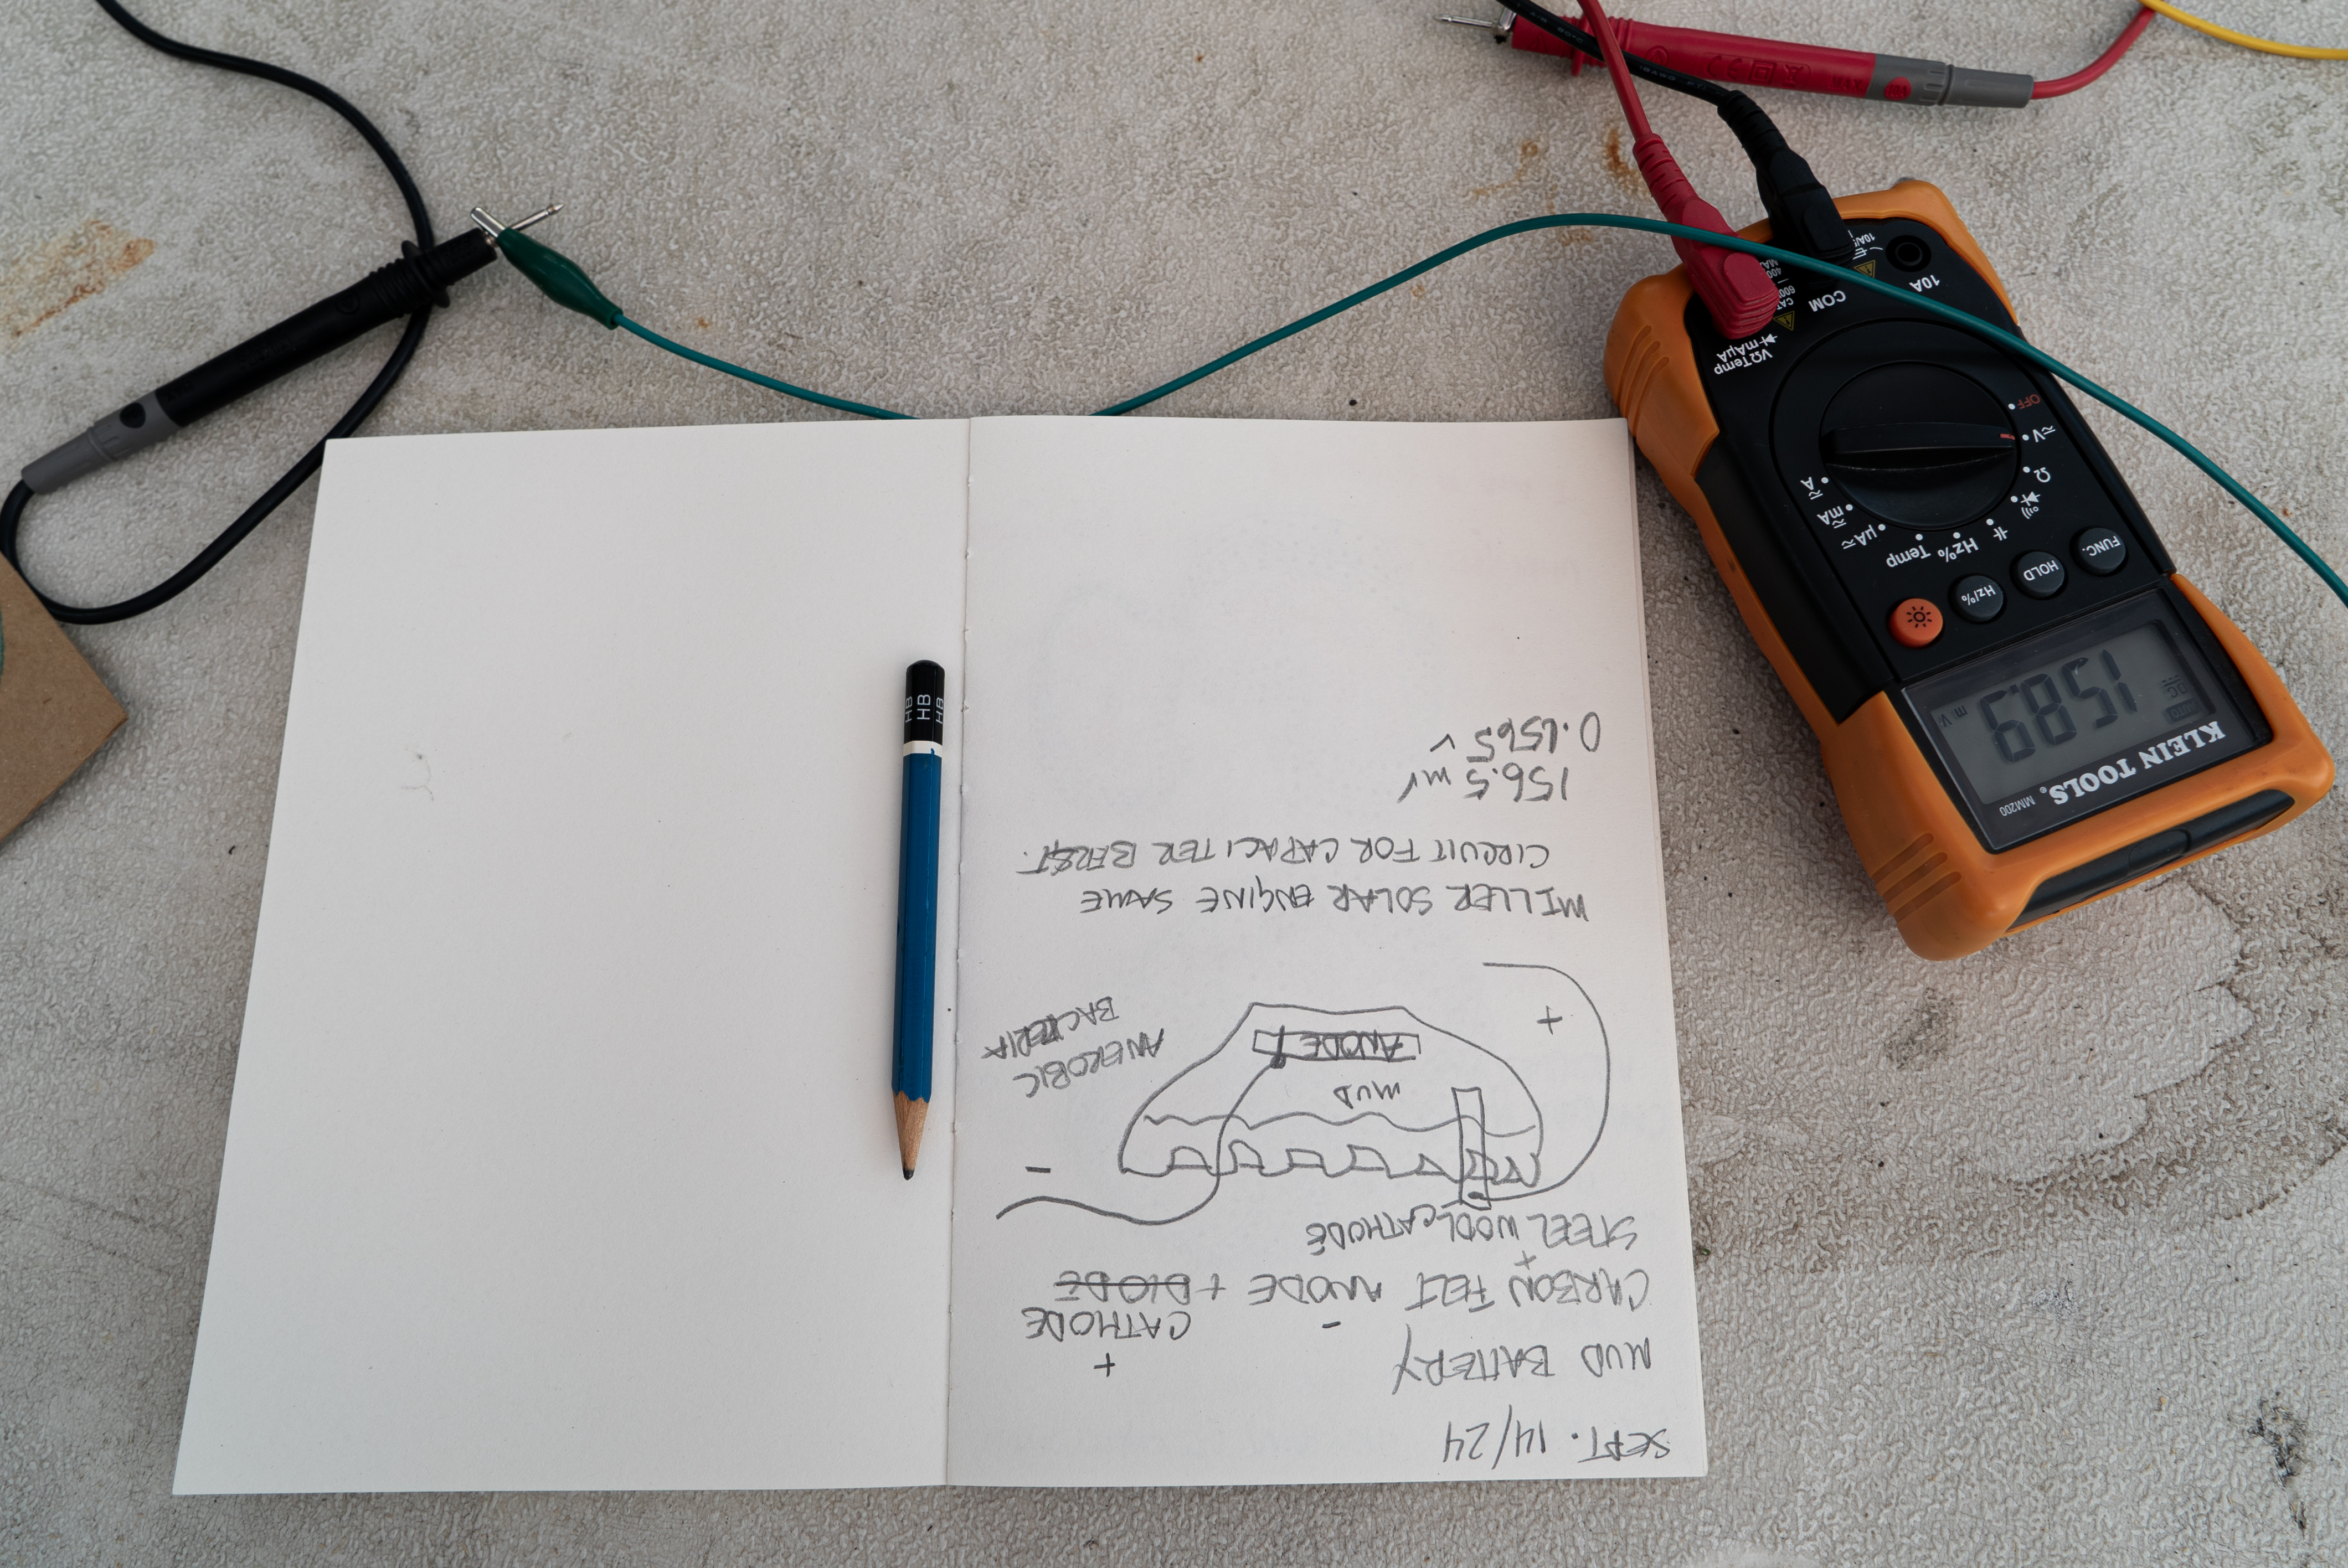 SEPT. 14/24
MUD BATTERY
+
CATHODE
-
CARBON FELT ANODE + DIODE
+
STEEL WOOL CATHODE
-
MUD
ANODE
+
ANEROBIC
BACTERIA
MILLER SOLAR ENGINE SAME
CIRCUIT FOR CAPACITER BFRST.
156.5 mV
0.1565 V
HB
HB
HB
MM200
KLEIN TOOLS®
AUTO
DC
158.9
m V
FUNC.
HOLD
Hz/%
Temp
Hz%
µA
mA
A
Ω
V
OFF
VΩTemp
mAµA
COM
10A